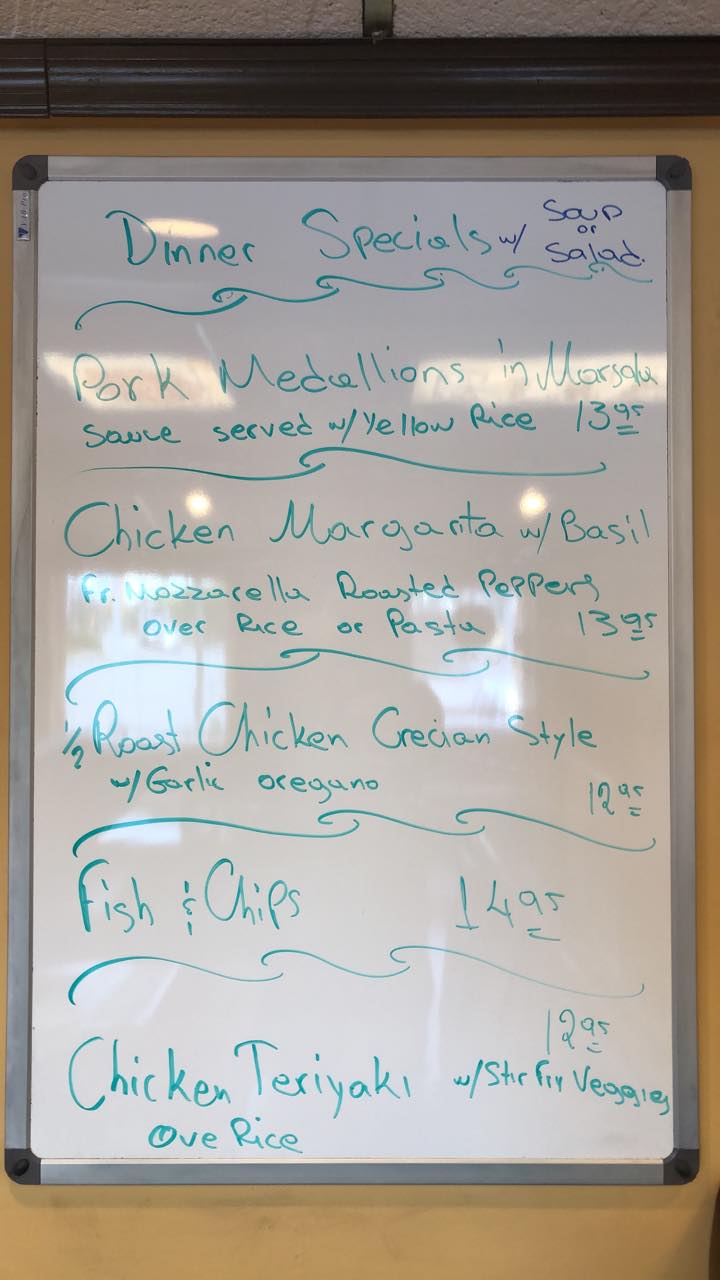 Dinner Specials w/ Soup or Salad.
Pork Medallions in Marsala
Sauce served w/ Yellow Rice 13.95
Chicken Margarita w/ Basil
Fr. Mozzarella Roasted Peppers
over Rice or Pasta 13.95
1/2 Roast Chicken Grecian Style
w/ Garlic oregano 12.95
Fish & Chips 14.95
12.95
Chicken Teriyaki w/ Stir Fry Veggies
Ove Rice